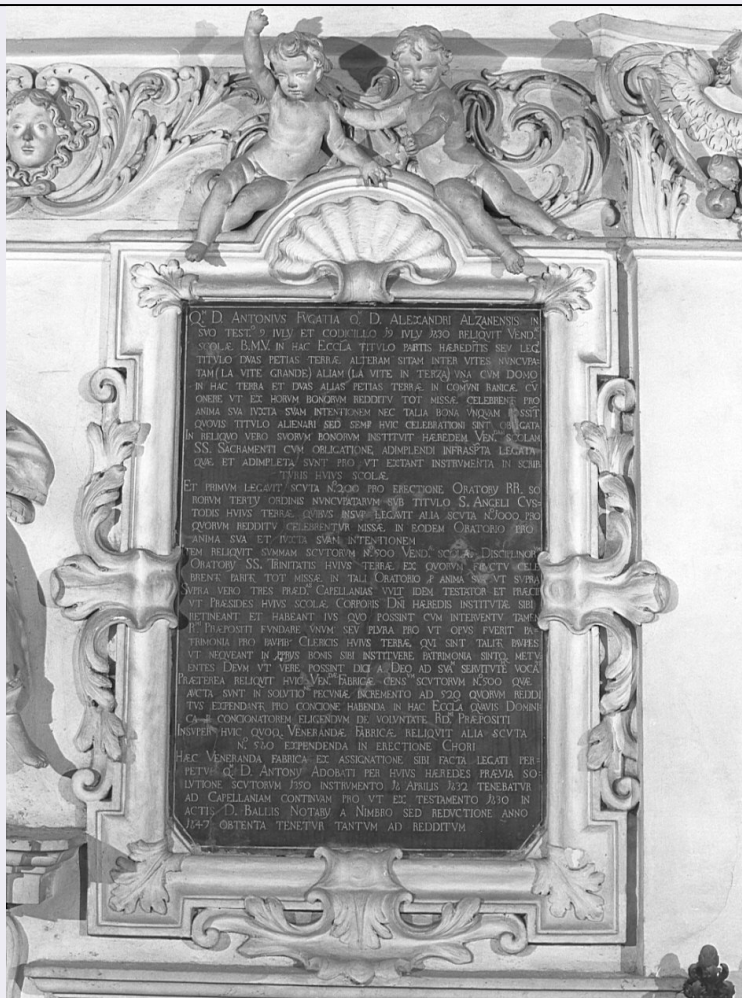 Q.M D. ANTONIVS FVGATIA Q. D. ALEXANDRI ALZANENSIS IN
SVO TEST.O 9 IVLY ET CODICILLO 19 IVLY 1630 RELIQVIT VEND.
SCOLÆ B.M.V. IN HAC ECCLA TITVLO PARTIS HÆREDITIS SEV LEG.
TITVLO DVAS PETIAS TERRÆ ALTERAM SITAM INTER VITES NVNCVPA-
TAM (LA VITE GRANDE) ALIAM (LA VITE IN TERZA) VNA CVM DOMO
IN HAC TERRA ET DVAS ALIAS PETIAS TERRÆ IN COMVNI RANICÆ CV
ONERE VT EX HORVM BONORVM REDDITV TOT MISSÆ CELEBRENT PRO
ANIMA SVA IVXTA SVAM INTENTIONEM NEC TALIA BONA VNQVAM POSSIT
QVOVIS TITVLO ALIENARI SED SEMP HVIC CELEBRATIONI SINT OBLIGATA
IN RELIQVO VERO SVORVM BONORVM INSTITVIT HÆREDEM VEN. SCOLAM
SS. SACRAMENTI CVM OBLIGATIONE ADIMPLENDI INFRASPTA LEGATA
QVÆ ET ADIMPLETA SVNT PRO VT EXTANT INSTRVMENTA IN SCRIP
TVRIS HVIVS SCOLÆ
ET PRIMVM LEGAVIT SCVTA N.O 200 PRO ERECTIONE ORATORY RR. SO
RORVM TERTY ORDINIS NVNCVPATARVM SVB TITVLO S. ANGELI CVS-
TODIS HVIVS TERRÆ QVIBVS INSVP LEGAVIT ALIA SCVTA N.O 1000 PRO
QVORVM REDDITV CELEBRENTVR MISSÆ IN EODEM ORATORIO PRO
ANIMA SVA ET IVXTA SVAM INTENTIONEM
EM RELIQVIT SVMMAM SCVTORVM N.O 500 VEND. SCOLÆ DISCIPLINOR
ORATORY SS. TRINITATIS HVIVS TERRÆ EX QVORVM FRVCTV CELE
BRENT PARIT TOT MISSÆ IN TALI ORATORIO P ANIMA SVA VT SVPRA
SVPRA VERO TRES PRÆD. CAPELLANIAS VVLT IDEM TESTATOR ET PRÆCI
VT PRÆSIDES HVIVS SCOLÆ CORPORIS DNI HÆREDIS INSTITVTÆ SIBI
RETINEANT ET HABEANT IVS QVO POSSINT CVM INTERVENTV TAMEN
R. PRÆPOSITI FVNDARE VNVM SEV PLVRA PRO VT OPVS FVERIT PA-
TRIMONIA PRO PAVPIB. CLERICIS HVIVS TERRÆ QVI SINT TALIT PAVPES
VT NEQVEANT IN PPRIIS BONIS SIBI INSTITVERE PATRIMONIA SINTQ METV
ENTES DEVM VT VERE POSSINT DICI A DEO AD SVA SERVITVTE VOCA
PRÆTEREA RELIQVIT HVIC VEN. FABRICÆ CENS SCVTORVM N.O 500 QVÆ
AVCTA SVNT IN SOLVTIO PECVNIÆ INCREMENTO AD 520 QVORVM REDDI
TVS EXPENDANT PRO CONCIONE HABENDA IN HAC ECCLA QVAVIS DOMINI
CA CONCIONATOREM ELIGENDVM DE VOLVNTATE RD. PRÆPOSITI
INSVPER HVIC QVOQ. VENERANDÆ FABRICÆ RELIQVIT ALIA SCVTA
N.O 520 EXPENDENDA IN ERECTIONE CHORI
HÆC VENERANDA FABRICA EX ASSIGNATIONE SIBI FACTA LEGATI PER-
PETVI Q.M D. ANTONY ADOBATI PER HVIVS HÆREDES PRÆVIA SO-
LVTIONE SCVTORVM 1350 INSTRVMENTO 18 APRILIS 1632 TENEBATVR
AD CAPELLANIAM CONTINVAM PRO VT EX TESTAMENTO 1630 IN
ACTIS D. BALLIS NOTARY A NIMBRO SED REDVCTIONE ANNO
1647 OBTENTA TENETVR TANTVM AD REDDITVM